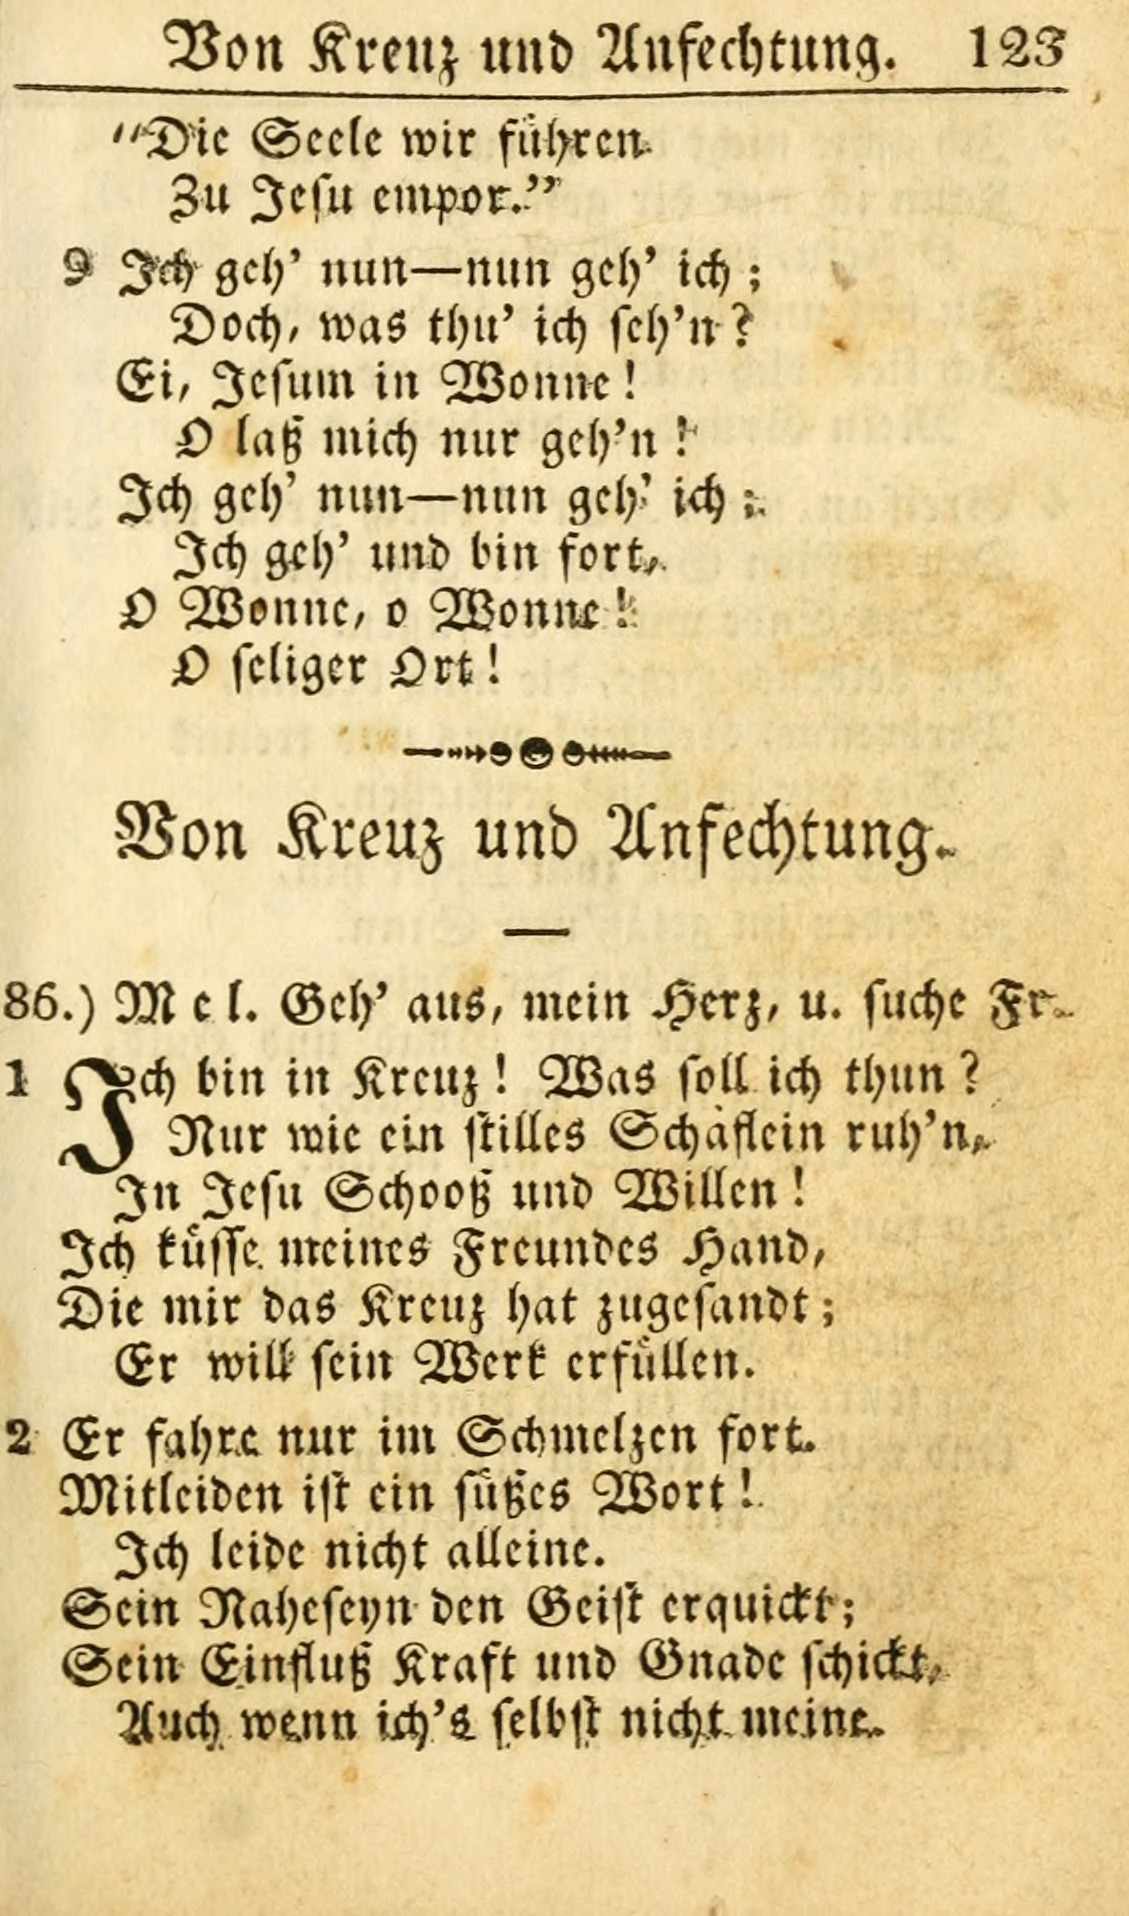 Von Kreuz und Anfechtung. 123
"Die Seele wir führen
Zu Jesu empor."
9 Ich geh' nun—nun geh' ich;
Doch, was thu' ich seh'n?
Ei, Jesum in Wonne!
O laß mich nur geh'n!
Ich geh' nun—nun geh' ich;
Ich geh' und bin fort,
O Wonne, o Wonne!
O seliger Ort!
Von Kreuz und Anfechtung.
86.) Mel. Geh' aus, mein Herz, u. suche Fr.
1 Ich bin in Kreuz! Was soll ich thun?
Nur wie ein stilles Schäflein ruh'n,
In Jesu Schooß und Willen!
Ich küsse meines Freundes Hand,
Die mir das Kreuz hat zugesandt;
Er will sein Werk erfüllen.
2 Er fahre nur im Schmelzen fort.
Mitleiden ist ein süßes Wort!
Ich leide nicht alleine.
Sein Naheseyn den Geist erquickt;
Sein Einfluß Kraft und Gnade schickt,
Auch wenn ich's selbst nicht meine.